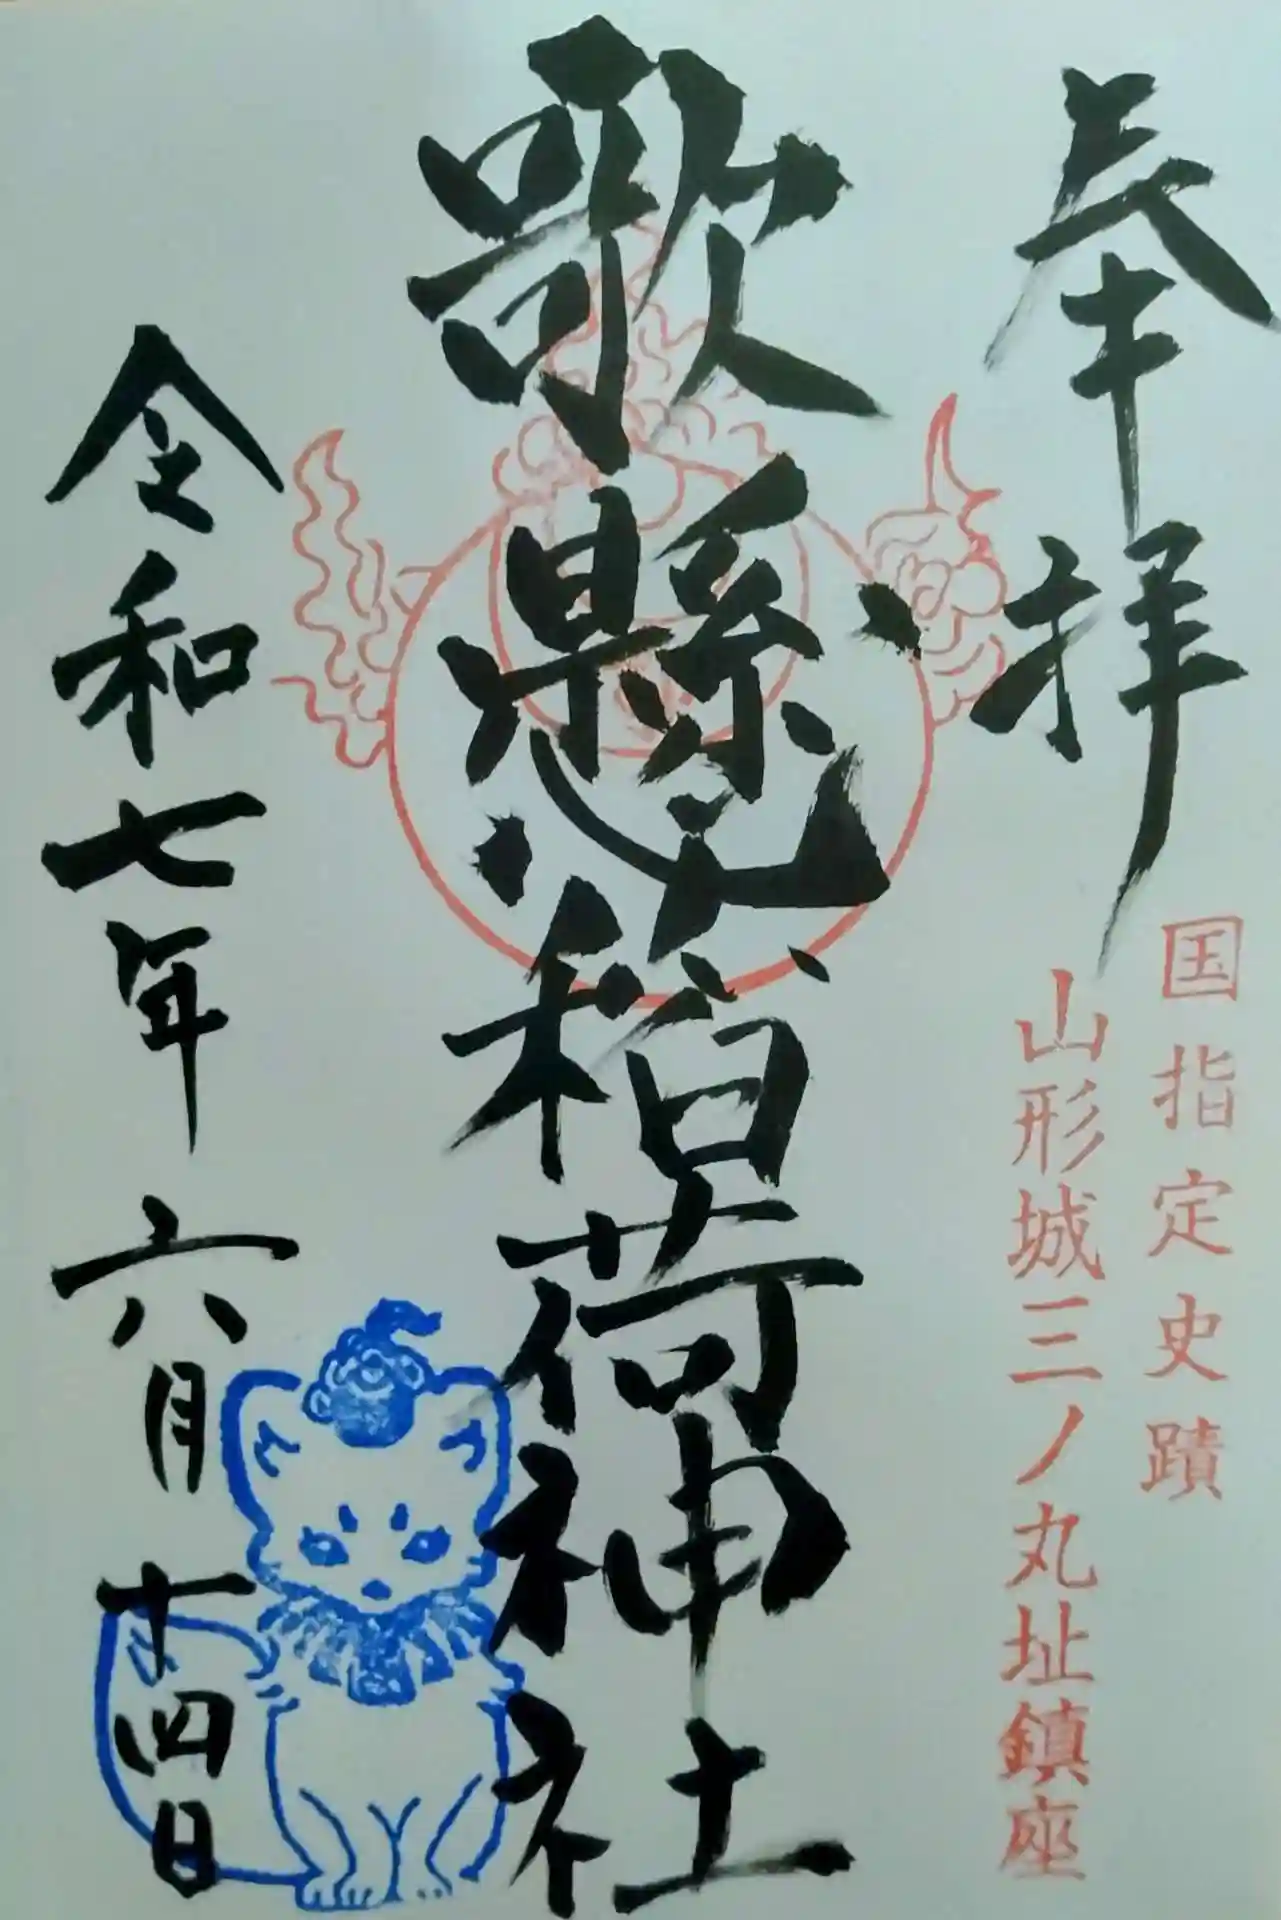 奉拝
国指定史蹟
山形城三ノ丸址鎮座
歌懸稲荷神社
令和七年六月十四日